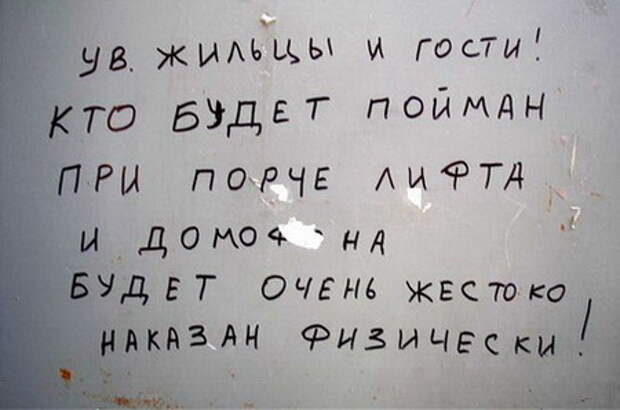 УВ. ЖИЛЬЦЫ И ГОСТИ!
КТО БУДЕТ ПОЙМАН
ПРИ ПОРЧЕ ЛИФТА
И ДОМОФОНА
БУДЕТ ОЧЕНЬ ЖЕСТОКО
НАКАЗАН ФИЗИЧЕСКИ!